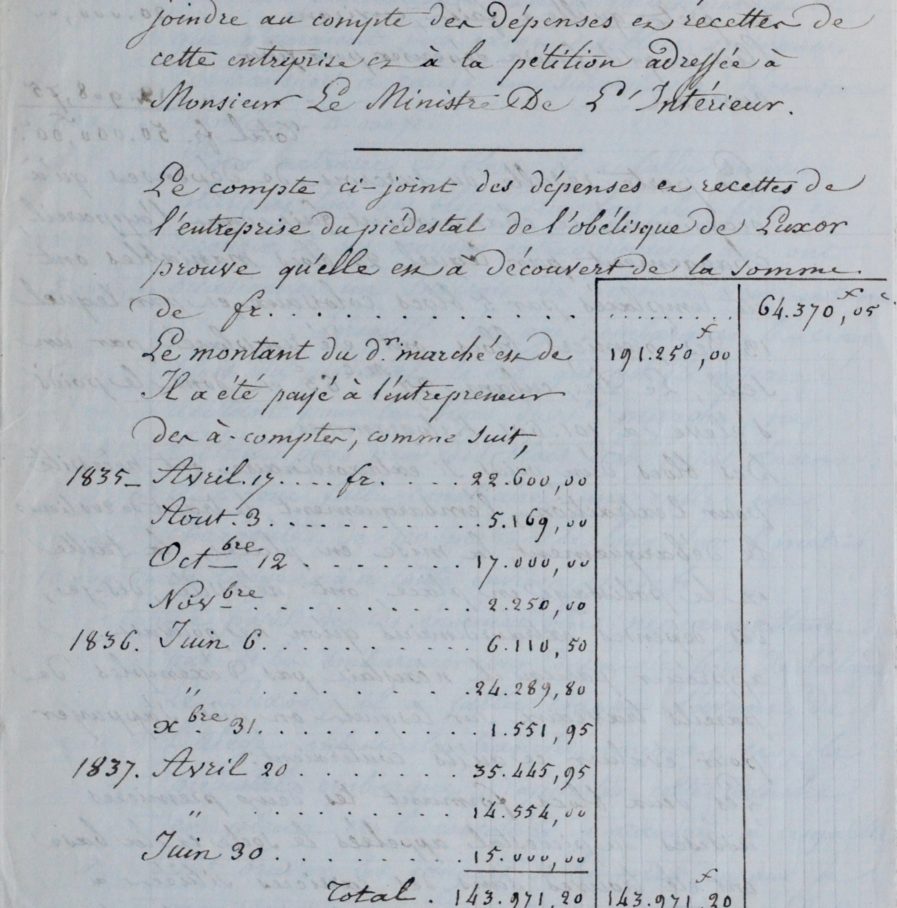 joindre au compte des dépenses et récettes de
cette entreprise et à la pétition adressée à
Monsieur Le Ministre De L'Intérieur.
Le compte ci-joint des dépenses et recettes de
l'entreprise du piédestal de l'obélisque de Luxor
prouve qu'elle est à découvert de la somme
de fr. . . . . . . . . . . . . . . . . . . . 64.370f,05c
Le montant du dr. marché est de 191.250f,00
Il a été payé à l'entrepreneur
des à-comptes, comme suit,
1835_ Avril. 17. . . . fr. . . . . 22.600,00
Aout. 3. . . . . . . . . . 5.169,00
Octbre 12 . . . . . . . . 17.000,00
Novbre . . . . . . . . . . 2.250,00
1836. Juin 6. . . . . . . . . . 6.110,50
" . . . . . . . . . 24.289,80
xbre 31. . . . . . . . . . 1.551,95
1837. Avril 20 . . . . . . . . 35.445,95
" . . . . . . . . . . 14.554,00
Juin 30 . . . . . . . . . 15.000,00
Total . 143.971,20 143.971f,20